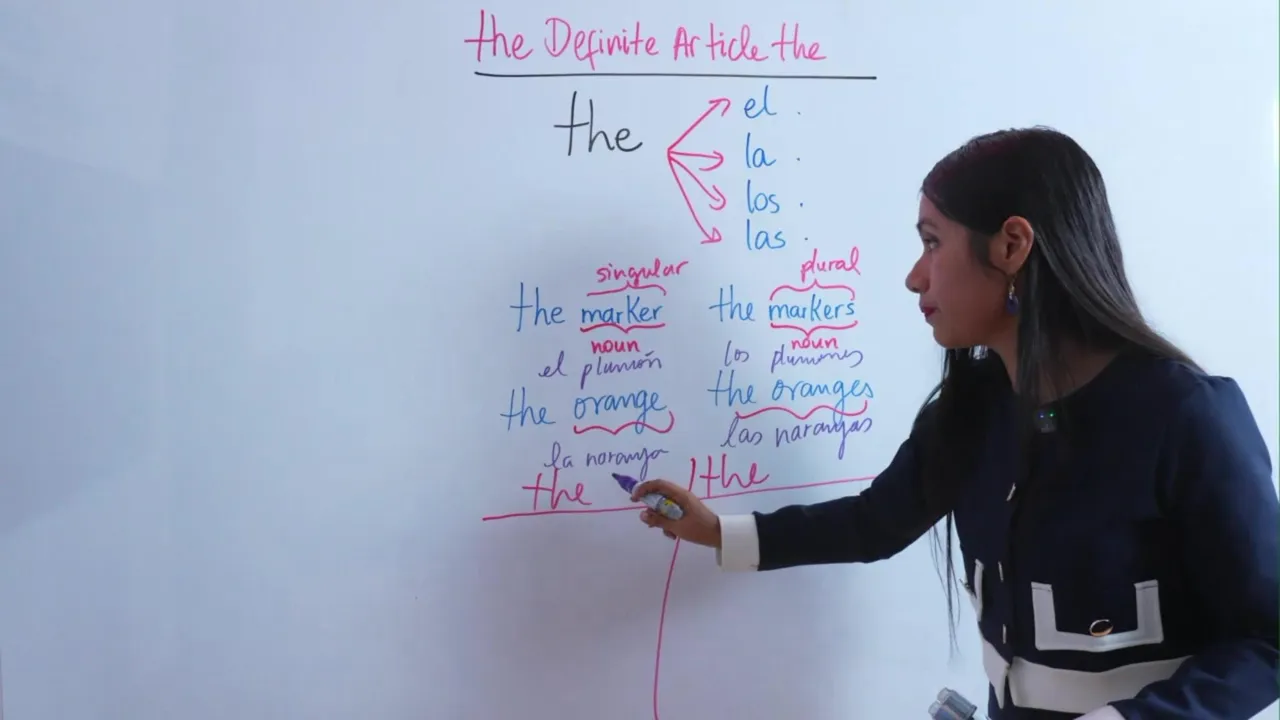 the Definite Article the
the
el .
la .
los .
las .
singular plural
the marker the markers
noun noun
el plumón los plumones
the orange the oranges
la naranja las naranjas
the the